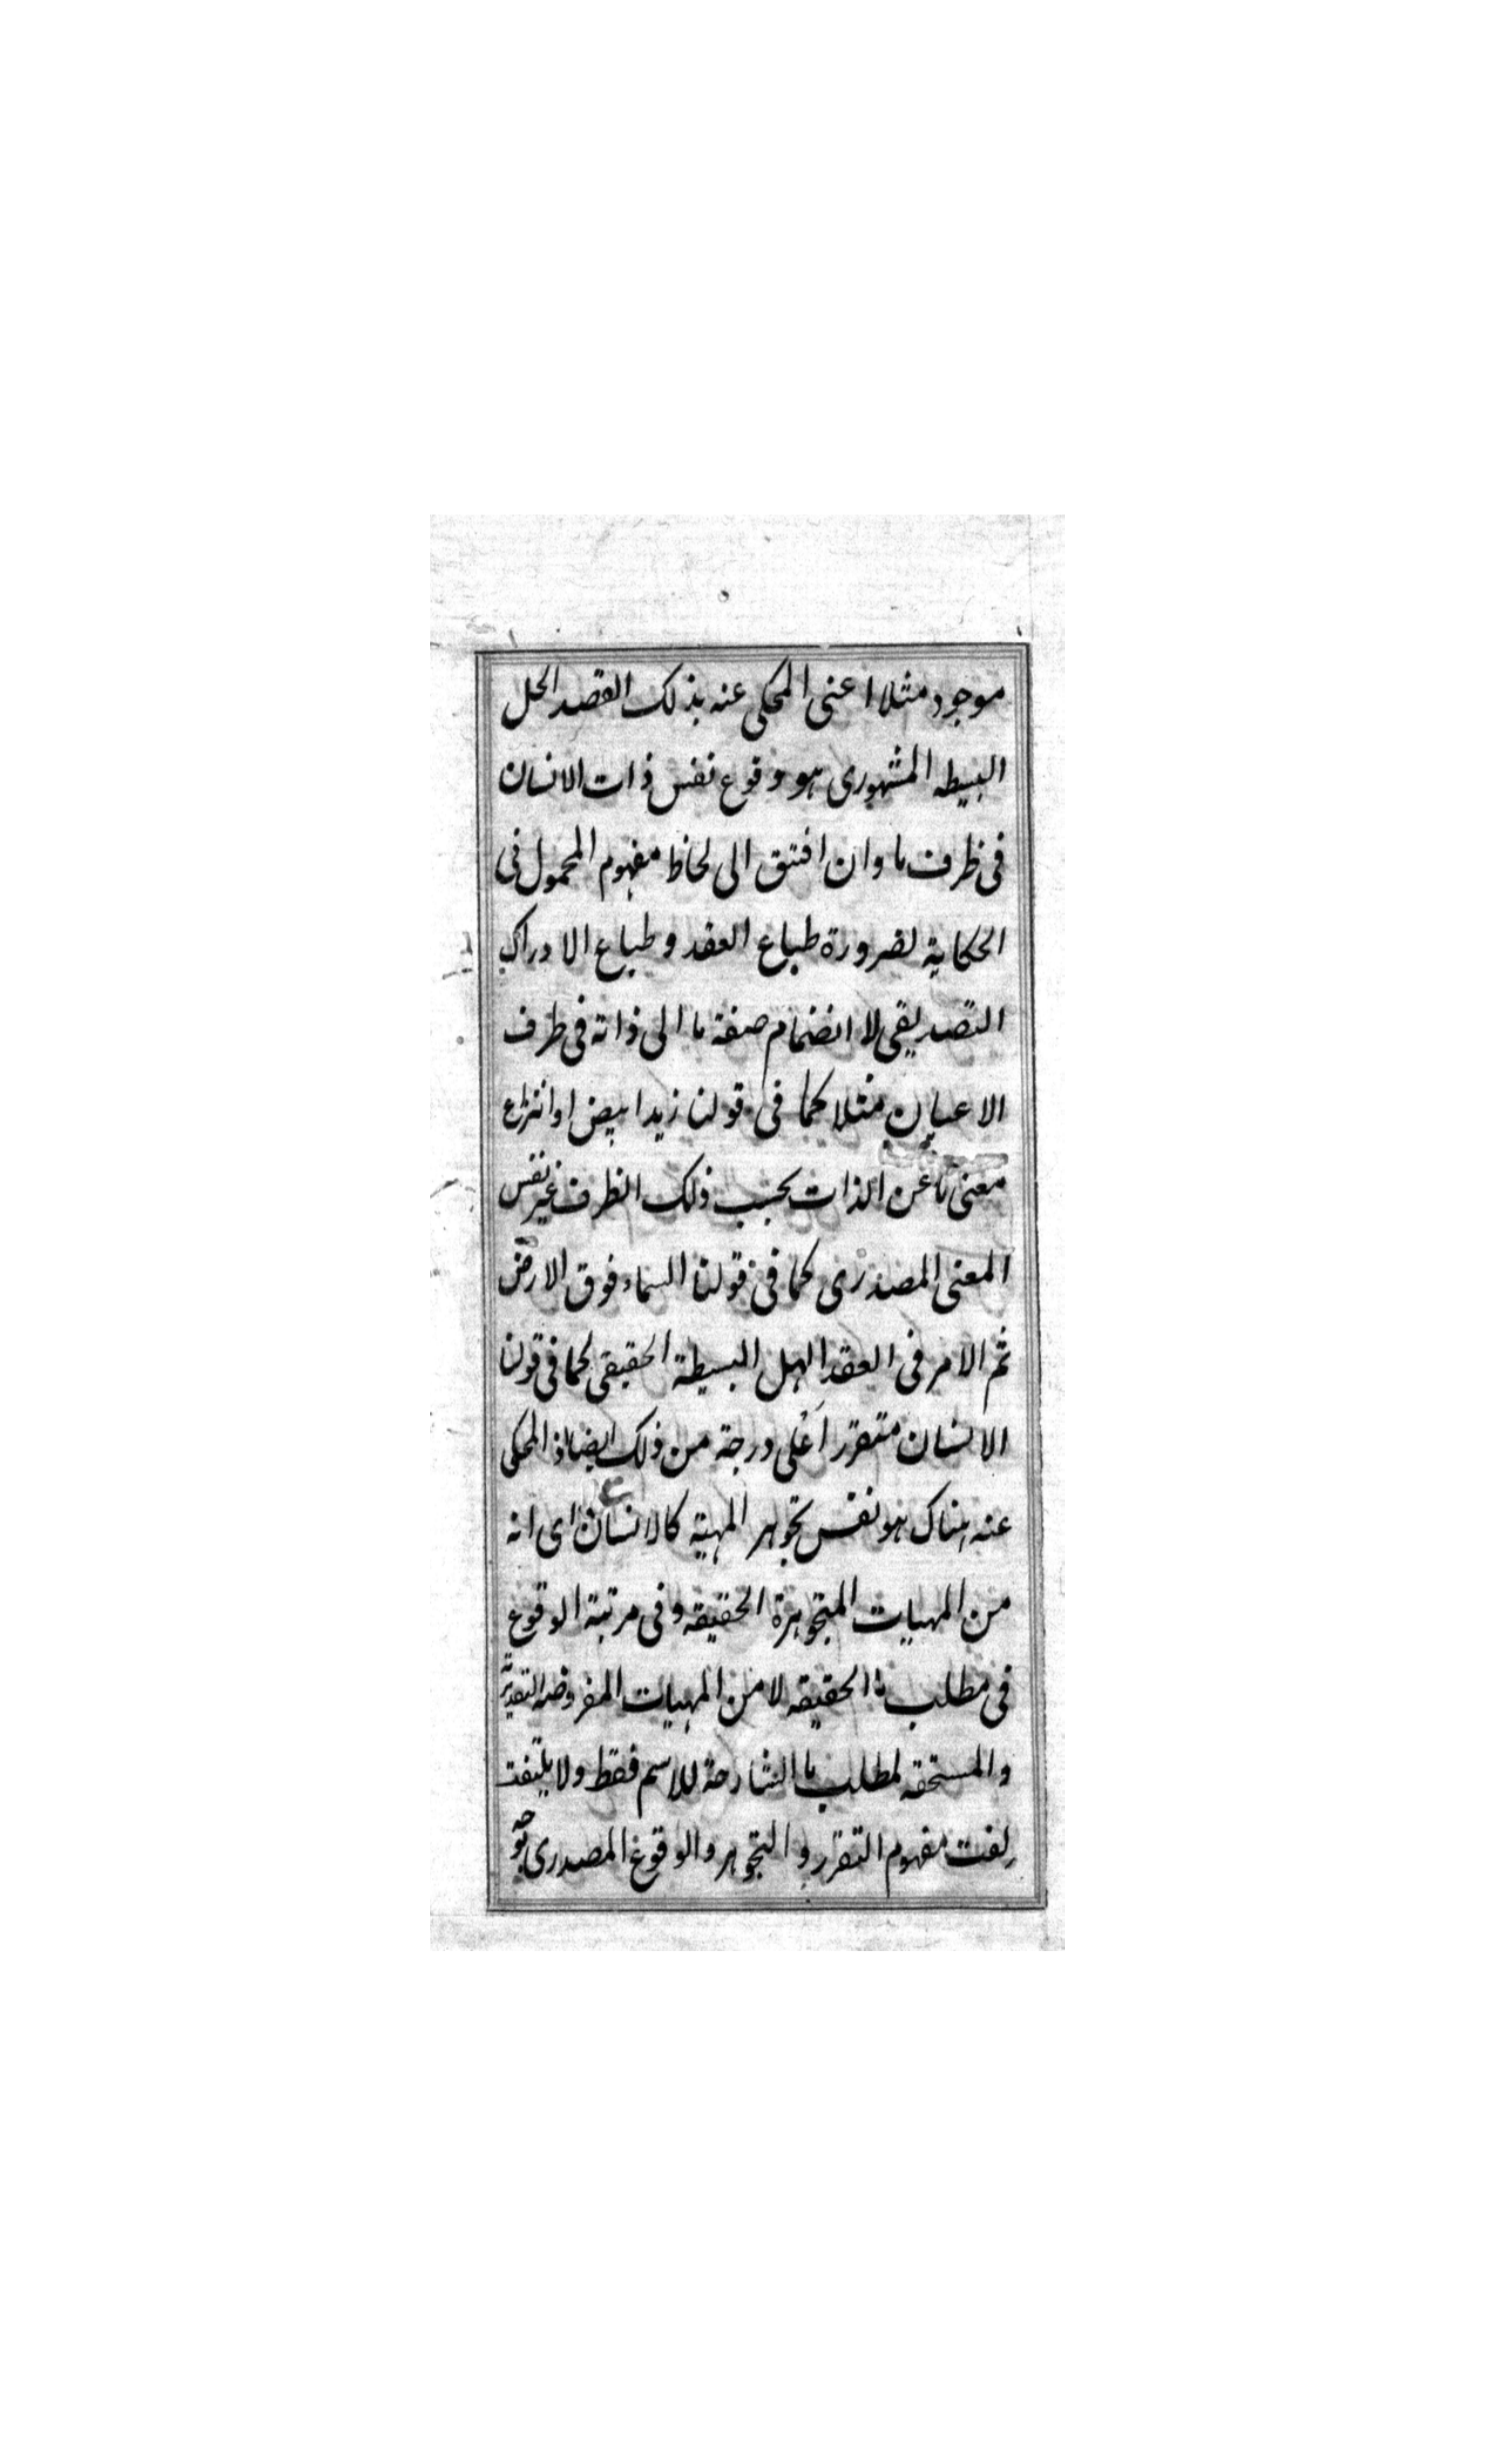 موجود مثلا اعنى المحكى عنه بذلك القصد الحل
البسيطه المشهورى هو وقوع نفس ذات الانسان
فى ظرف ما وان افتق الى لحاظ مفهوم المحمول فى
الحكاية لضرورة طباع العقد وطباع الادراك
التصديقى لا انضمام صفة ما الى ذاته فى ظرف
الاعيان مثلا كما فى قولنا زيد ابيض او انتزاع
معنى ما عن الذات بحسب ذلك الظرف غير نفس
المعنى المصدرى كما فى قولنا السماء فوق الارض
ثم الامر فى العقد الهل البسيطة الحقيقى كما فى قولنا
الانسان متقرر اعلى درجة من ذلك ايضا اذ المحكى
عنه هناك هو نفس تجوهر المهية كالانسان اى انه
من المهيات المتجوهرة الحقيقه وفى مرتبة الوقوع
فى مطلب ما الحقيقه لا من المهيات المفروضه التقديرية
والمستحقه لمطلب ما الشارحة للاسم فقط ولا يلتفت
لفت مفهوم التقرر والتجوهر والوقوع المصدرى